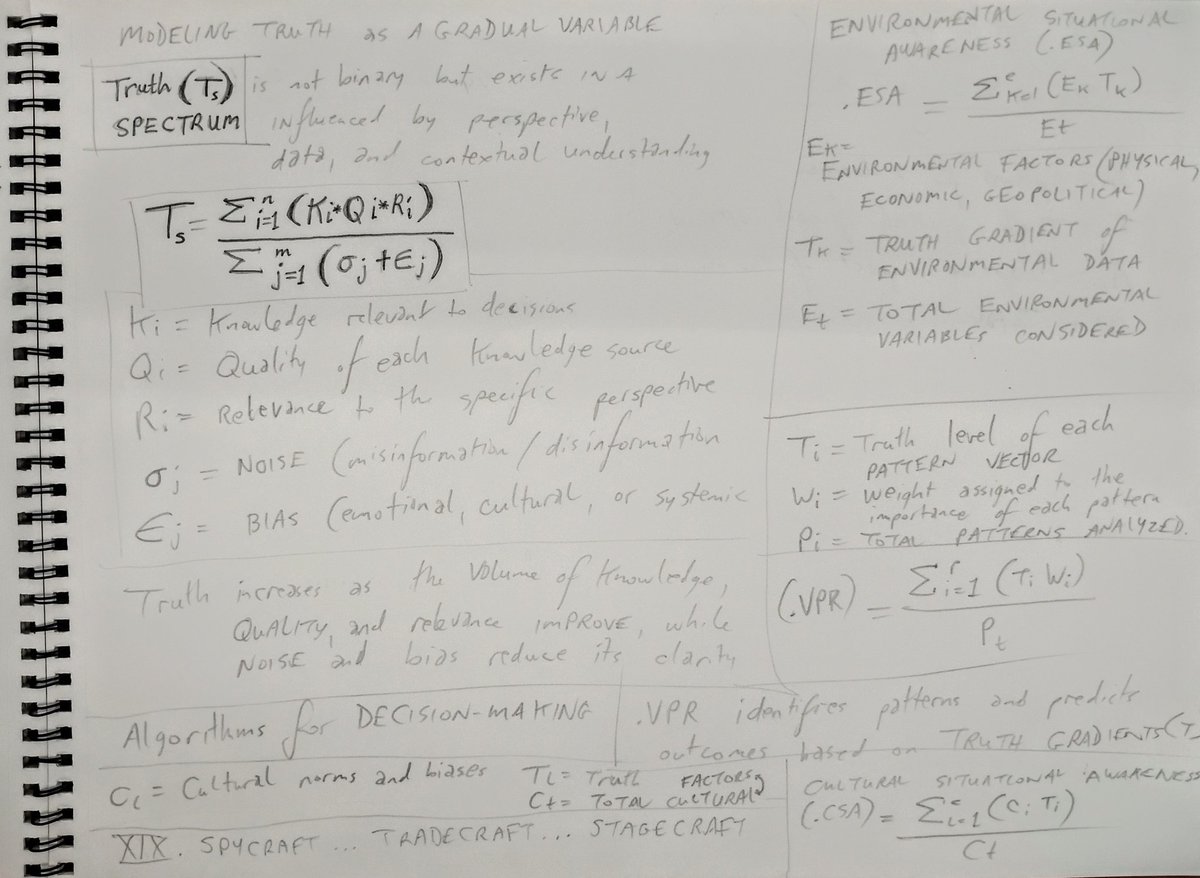 MODELING TRUTH as A GRADUAL VARIABLE
Truth (Ts) is not binary but exists IN A
SPECTRUM influenced by perspective,
data, and contextual understanding
Ts = Σ i=1 n (Ki*Qi*Ri)
Σ j=1 m (σj+Ej)
Ki = Knowledge relevant to decisions
Qi = Quality of each Knowledge source
Ri = Relevance to the specific perspective
σj = NOISE (misinformation/disinformation
Ej = BIAS (emotional, cultural, or systemic
Truth increases as the Volume of Knowledge,
QUALITY, and relevance IMPROVE, while
NOISE and bias reduce its clarity
ENVIRONMENTAL SITUATIONAL
AWARENESS (.ESA)
.ESA = Σ K=1 e (EK TK)
Et
EK=
ENVIRONMENTAL FACTORS (PHYSICAL,
ECONOMIC, GEOPOLITICAL)
TK = TRUTH GRADIENT of
ENVIRONMENTAL DATA
Et = TOTAL ENVIRONMENTAL
VARIABLES CONSIDERED
Ti = Truth level of each
PATTERN VECTOR
Wi = weight assigned to the
importance of each pattern
Pi = TOTAL PATTERNS ANALYZED.
(.VPR) = Σ i=1 r (Ti Wi)
Pt
Algorithms for DECISION-MAKING
.VPR identifies patterns and predicts
outcomes based on TRUTH GRADIENTS (T
Ci = Cultural norms and biases
Ti = Truth FACTORS
Ct = TOTAL CULTURAL
CULTURAL SITUATIONAL AWARENESS
(.CSA) = Σ i=1 c (Ci Ti)
Ct
XIX. SPYCRAFT ... TRADECRAFT ... STAGECRAFT